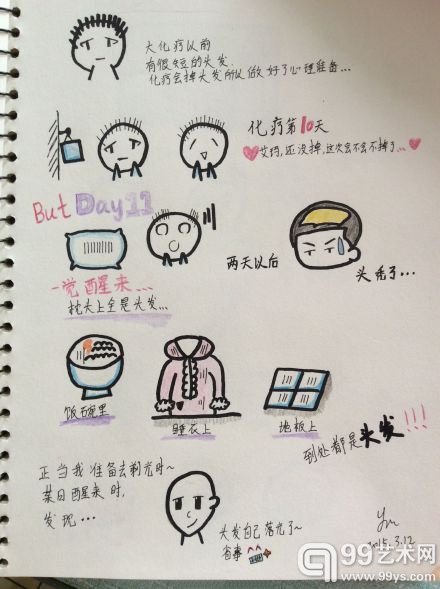 大化疗以前
有很短的头发.
化疗会掉头发所以做好了心理准备...
化疗第10天
艾玛,还没掉,这次会不会不掉了...
But Day11
一觉醒来...
枕头上全是头发...
两天以后
头秃了...
饭碗里
睡衣上
地板上
到处都是头发!!!
正当我准备去剃光时~
某日醒来时,
发现...
头发自己落光了~
省事
2015.3.12
99艺术网
www.99ys.com